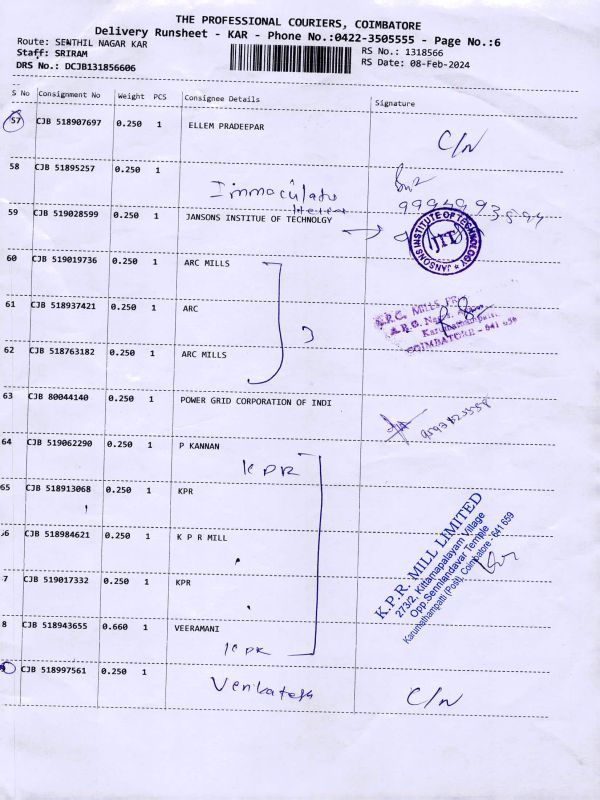 THE PROFESSIONAL COURIERS, COIMBATORE
Delivery Runsheet - KAR - Phone No.:0422-3505555 - Page No.:6
Route: SENTHIL NAGAR KAR
Staff: SRIRAM
DRS No.: DCJB131856606
RS No.: 1318566
RS Date: 08-Feb-2024
S No Consignment No Weight PCS Consignee Details Signature
57 CJB 518907697 0.250 1 ELLEM PRADEEPAR C/N
58 CJB 51895257 0.250 1
Immaculate
59 CJB 519028599 0.250 1 JANSONS INSTITUE OF TECHNOLGY
JANSONS INSTITUTE OF TECHNOLOGY
JIT
60 CJB 519019736 0.250 1 ARC MILLS
61 CJB 518937421 0.250 1 ARC
62 CJB 518763182 0.250 1 ARC MILLS
3
COIMBATORE - 641
63 CJB 80044140 0.250 1 POWER GRID CORPORATION OF INDI
64 CJB 519062290 0.250 1 P KANNAN
KPR
65 CJB 518913068 0.250 1 KPR
66 CJB 518984621 0.250 1 K P R MILL
7 CJB 519017332 0.250 1 KPR
8 CJB 518943655 0.660 1 VEERAMANI
KPR
K.P.R. MILL LIMITED
273/2, Kittampalayam Village
Opp.Senniandavar Temple
Karumathampatti (Post), Coimbatore - 641 659
CJB 518997561 0.250 1
Venkatesh C/N